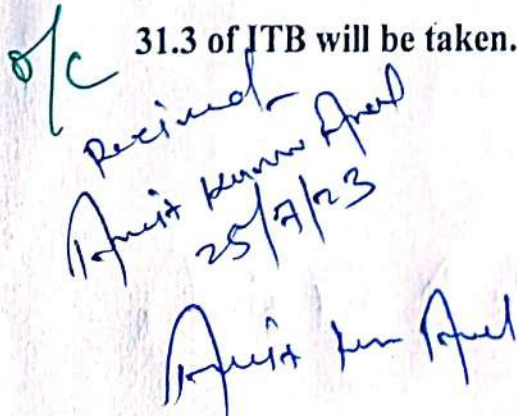 o/c 31.3 of ITB will be taken.
Received
Amit Kumar
25/7/23
Amit Kum